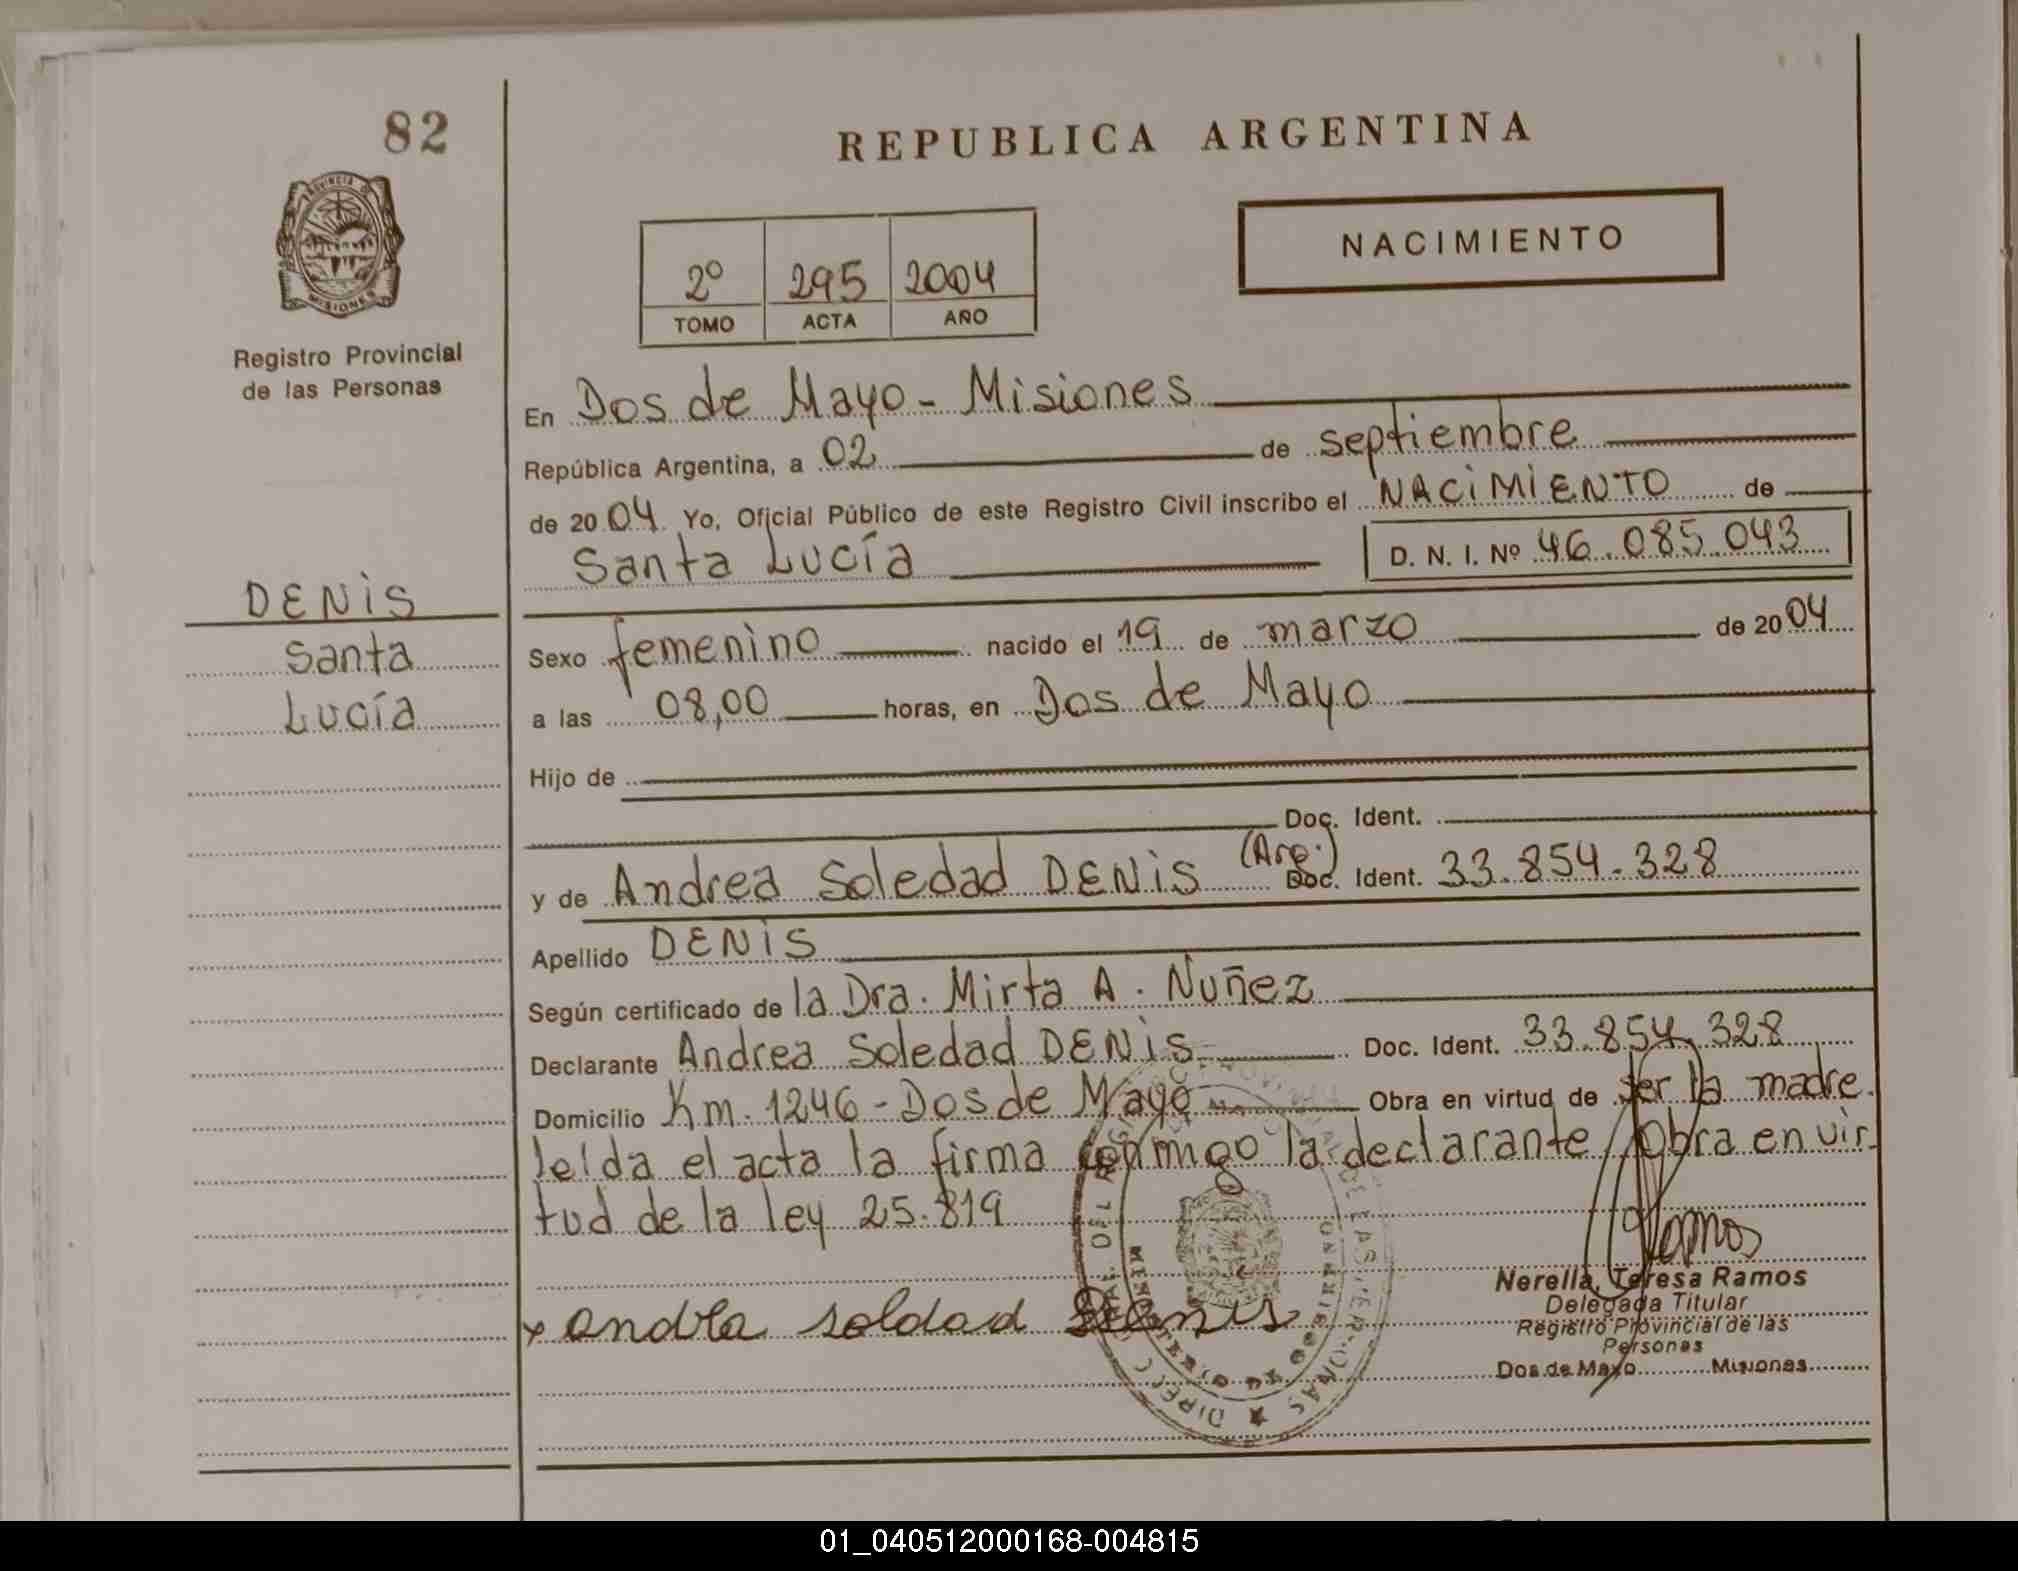 82
REPUBLICA ARGENTINA
PROVINCIA DE
MISIONES
Registro Provincial
de las Personas
NACIMIENTO
2º 295 2004
TOMO ACTA AÑO
En Dos de Mayo - Misiones
República Argentina, a 02 de septiembre
de 2004 Yo, Oficial Público de este Registro Civil inscribo el NACIMIENTO de
Santa Lucía D. N. I. Nº 46.085.043
DENIS
Santa
Lucía
Sexo femenino nacido el 19 de marzo de 2004
a las 08,00 horas, en Dos de Mayo
Hijo de
Doc. Ident.
y de Andrea Soledad DENIS (Arg.) Doc. Ident. 33.854.328
Apellido DENIS
Según certificado de la Dra. Mirta A. Nuñez
Declarante Andrea Soledad DENIS Doc. Ident. 33.854.328
Domicilio Km. 1246 - Dos de Mayo Obra en virtud de ser la madre.
leída el acta la firma conmigo la declarante, Obra en vir
tud de la ley 25.819
Ramos
x andrea soldad Denis
Nerella, Teresa Ramos
Delegada Titular
Registro Provincial de las
Personas
Dos de Mayo Misiones
01_040512000168-004815